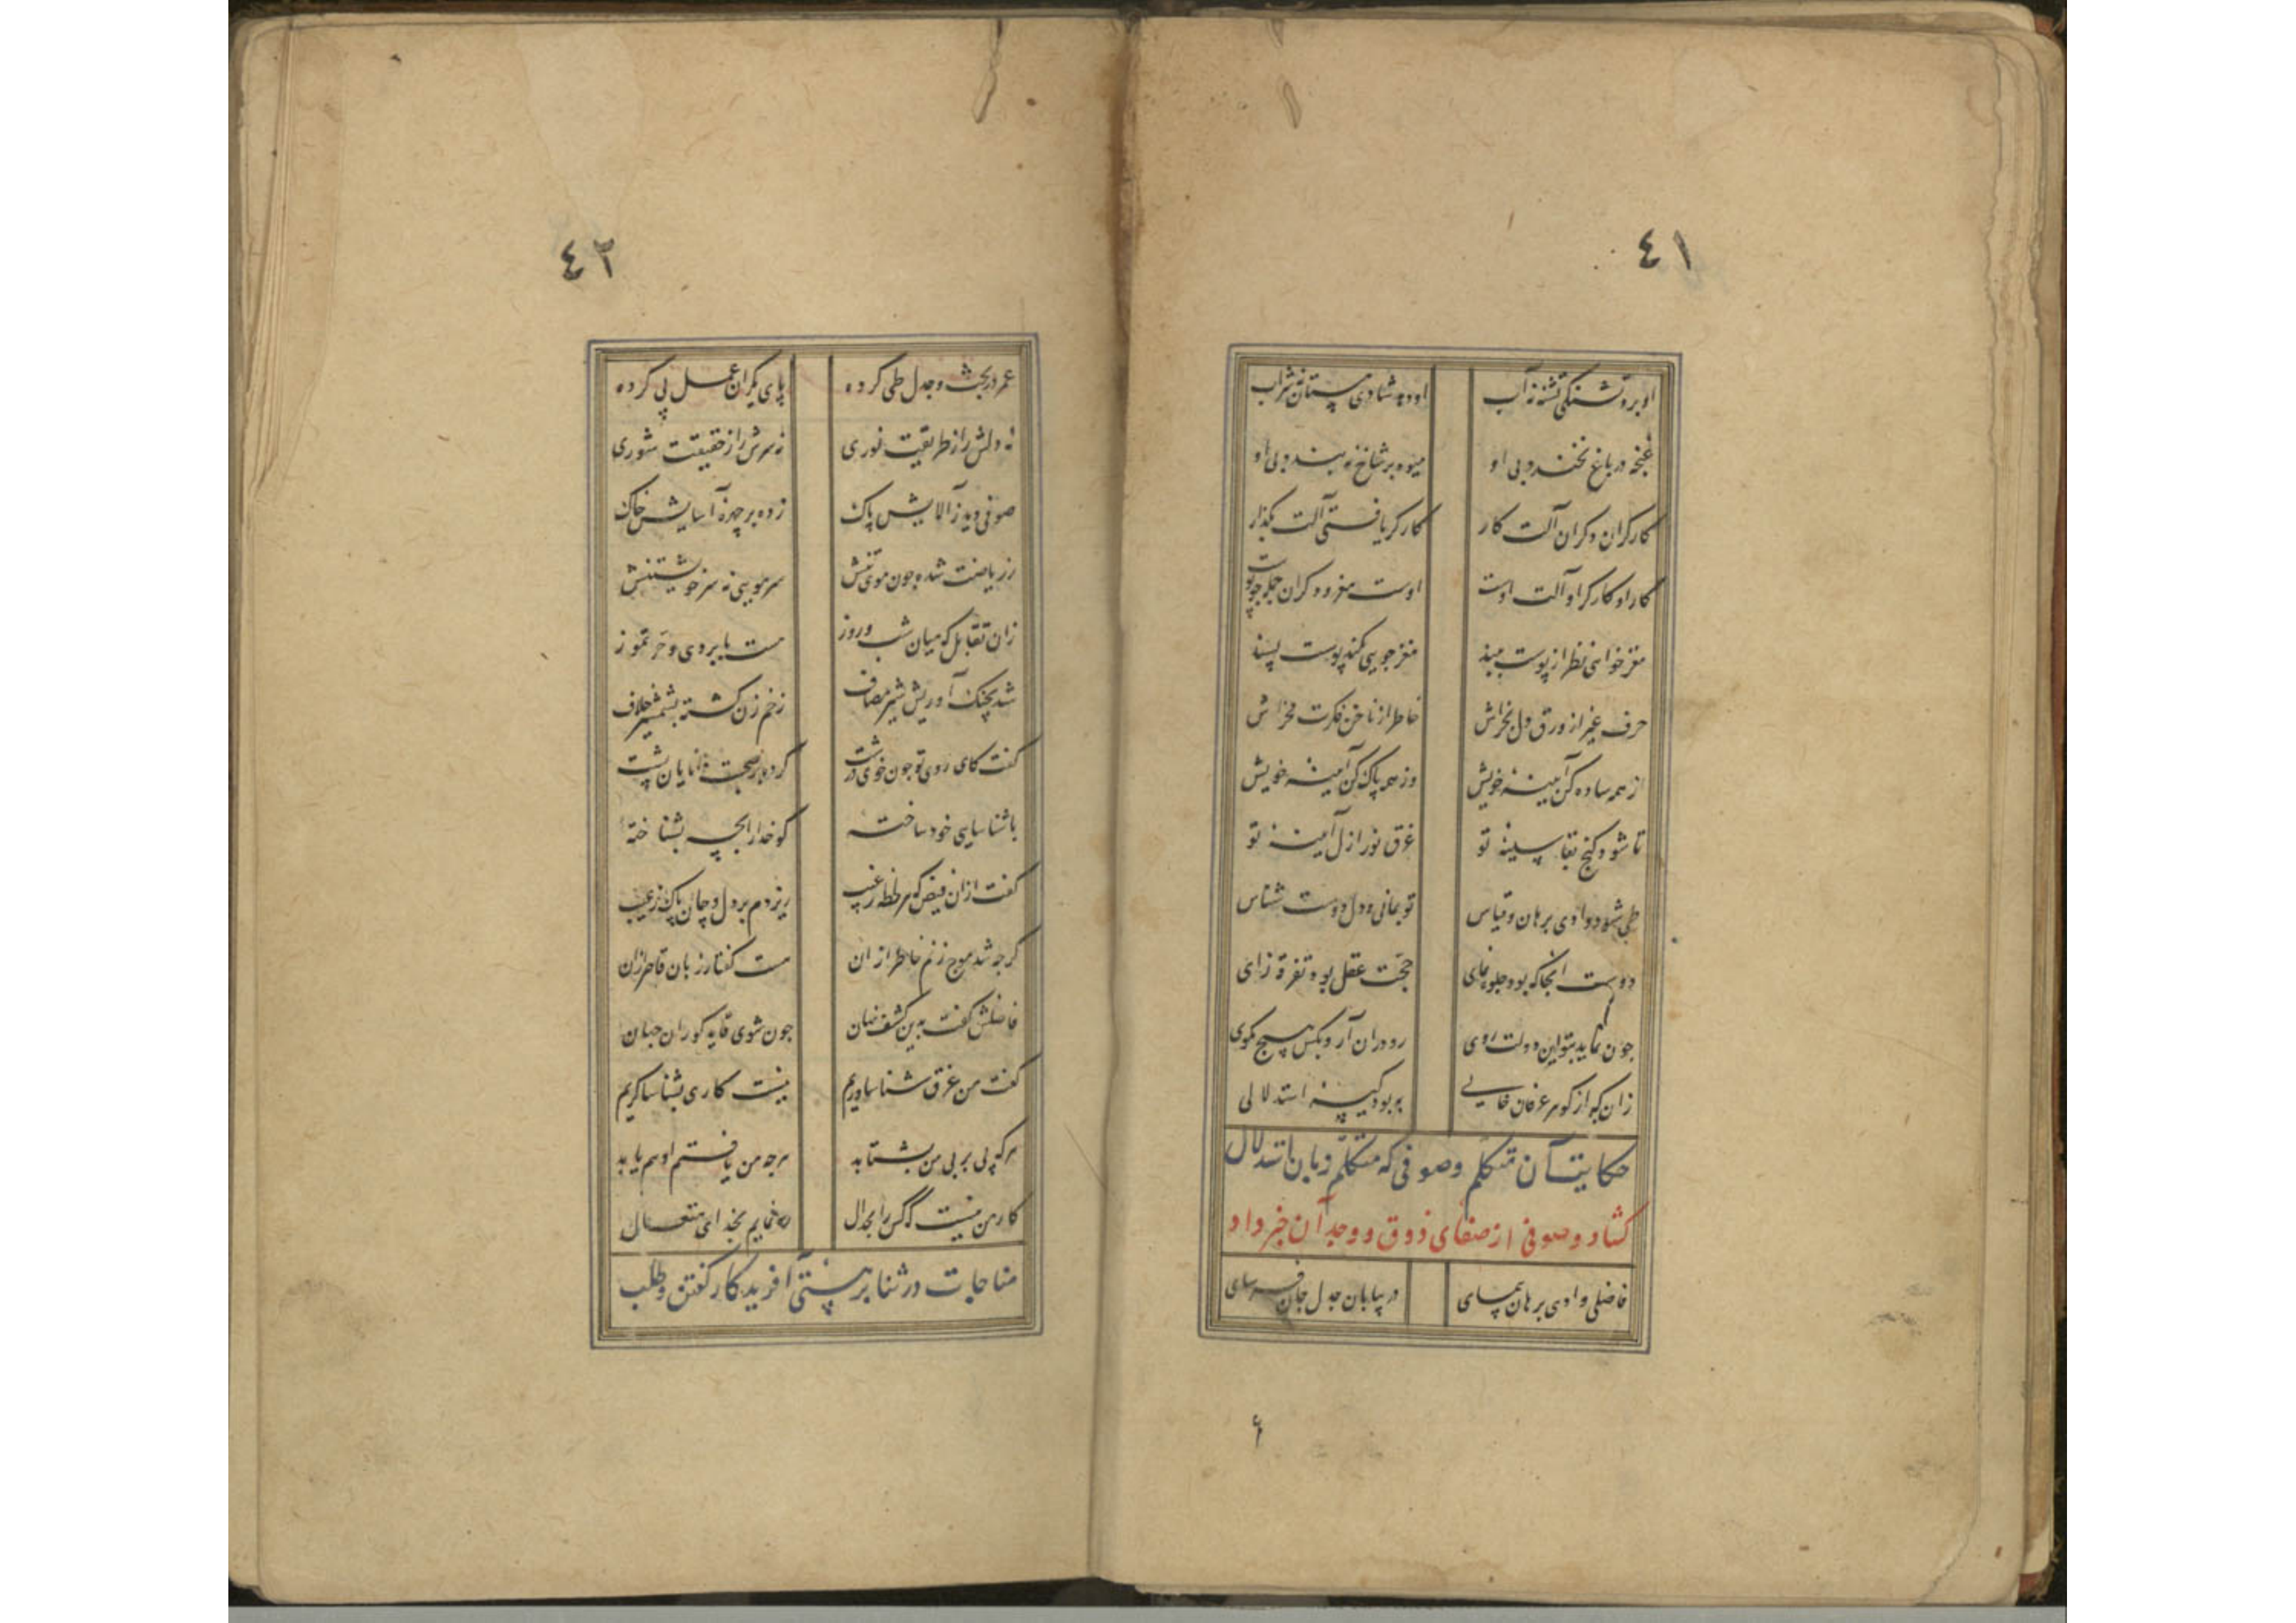 ٤١
او برد تشنگی تشنه نه آب او دهد شادی مستان نه شراب
غنچه در باغ نخندد بی او میوه بر شاخ نه بندد بی او
کارکران دکران آلت کار کارکر یافتی آلت بکذار
کار او کارکر او آلت اوست اوست مغز و دکران جمله چو پوست
مغز خواهی نظر از پوست ببند مغز جویی نکند پوست پسند
حرف غیر از ورق دل بخراش خاطر از ناخن فکرت مخراش
از همه ساده کن آیینه خویش وز همه پاک کن آیینه خویش
تا شود کنج بقا سینه تو غرق نور ازل آیینه تو
طی شود وادی برهان و قیاس تو بمانی و دل دوست شناس
دوست انجا که بود جلوه نمای حجت عقل بود تفرقه زای
چون نماید بتو این دولت روی رو در آن آر و بکس هیچ مکوی
زان که از کوهر عرفان خالی به بود کیسه استدلالی
حکایت آن متکلم و صوفی که متکلم زبان باستدلال
کشاد و صوفی از صفای ذوق و وجد آن خبر داد
فاضلی وادی برهان پیمای در بیابان جدل جان فرسای
٤٢
عمر در بحث و جدل طی کرده پای یکران عمل پی کرده
نه دلش را ز طریقت نوری نه سرش را ز حقیقت شوری
صوفی دید ز آلایش پاک زده بر چهره آسایش خاک
از ریاضت شده چون موی تنش سر مویی نه سر خویشتنش
زان تقابل که میان شب و روز هست با برد دی و حر تموز
شد بجنک آوریش شیر مصاف زخم زن کشته بشمشیر خلاف
کفت کای روی تو چون خوی درشت کرده بر صحبت دانایان پشت
باشناسایی خود ساخته کو خدا را بچه بشناخته
کفت ازان فیض که هر لحظه ز غیب ریزدم بر دل و جان پاک ز عیب
کرچه شد موج زنم خاطر ازان هست کفتار زبان قاصر ازان
فاضلش کفت بدین کشف نهان چون شوی قاید کوران جهان
کفت من غرق شناساوریم نیست کاری بشناساکریم
هر که پی بر پی من بشتابد هر چه من یافتم او هم یابد
کار من نیست که کس را بجدال ره نمایم بخدای متعال
مناجات در ثنا بر هستی آفریدکار کفتن و طلب